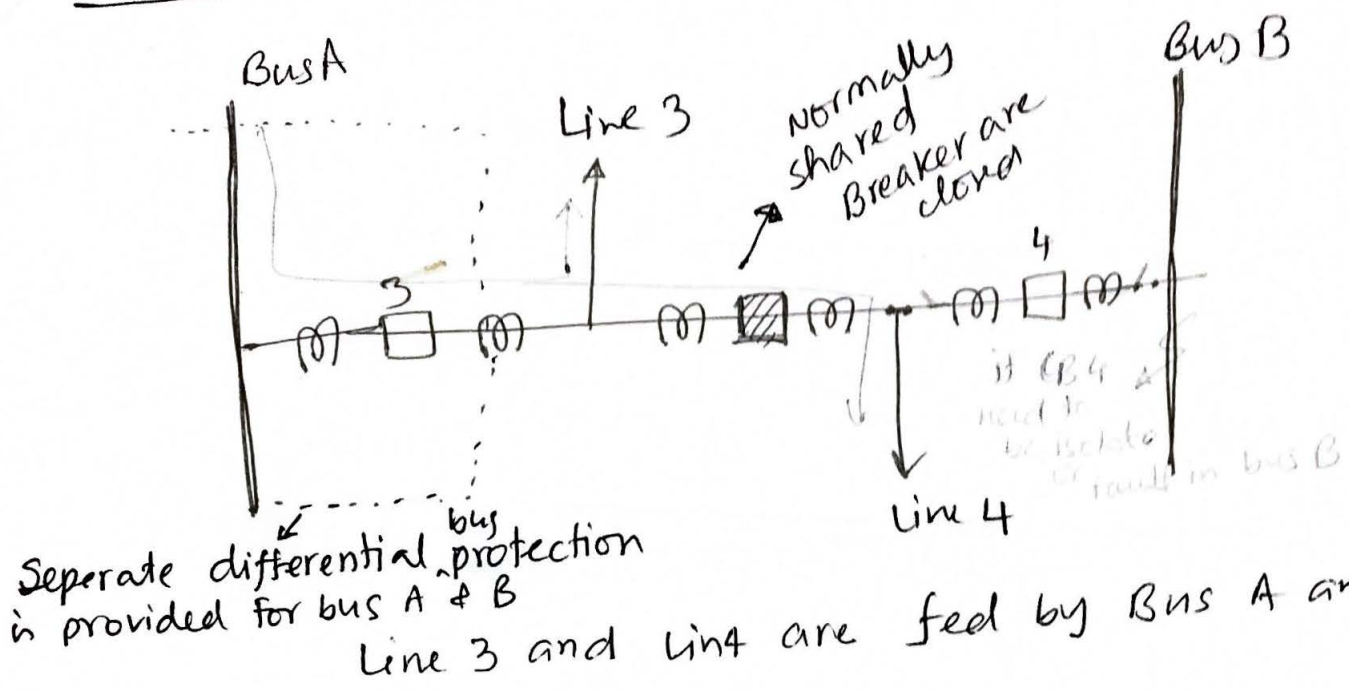 Bus A
Bus B
Line 3
Normally
shared
Breaker are
closed
3
4
if CB 4
need to
be isolate
or
fault in bus B
Line 4
bus
Seperate differential protection
is provided for bus A & B
Line 3 and Lin4 are fed by Bus A an